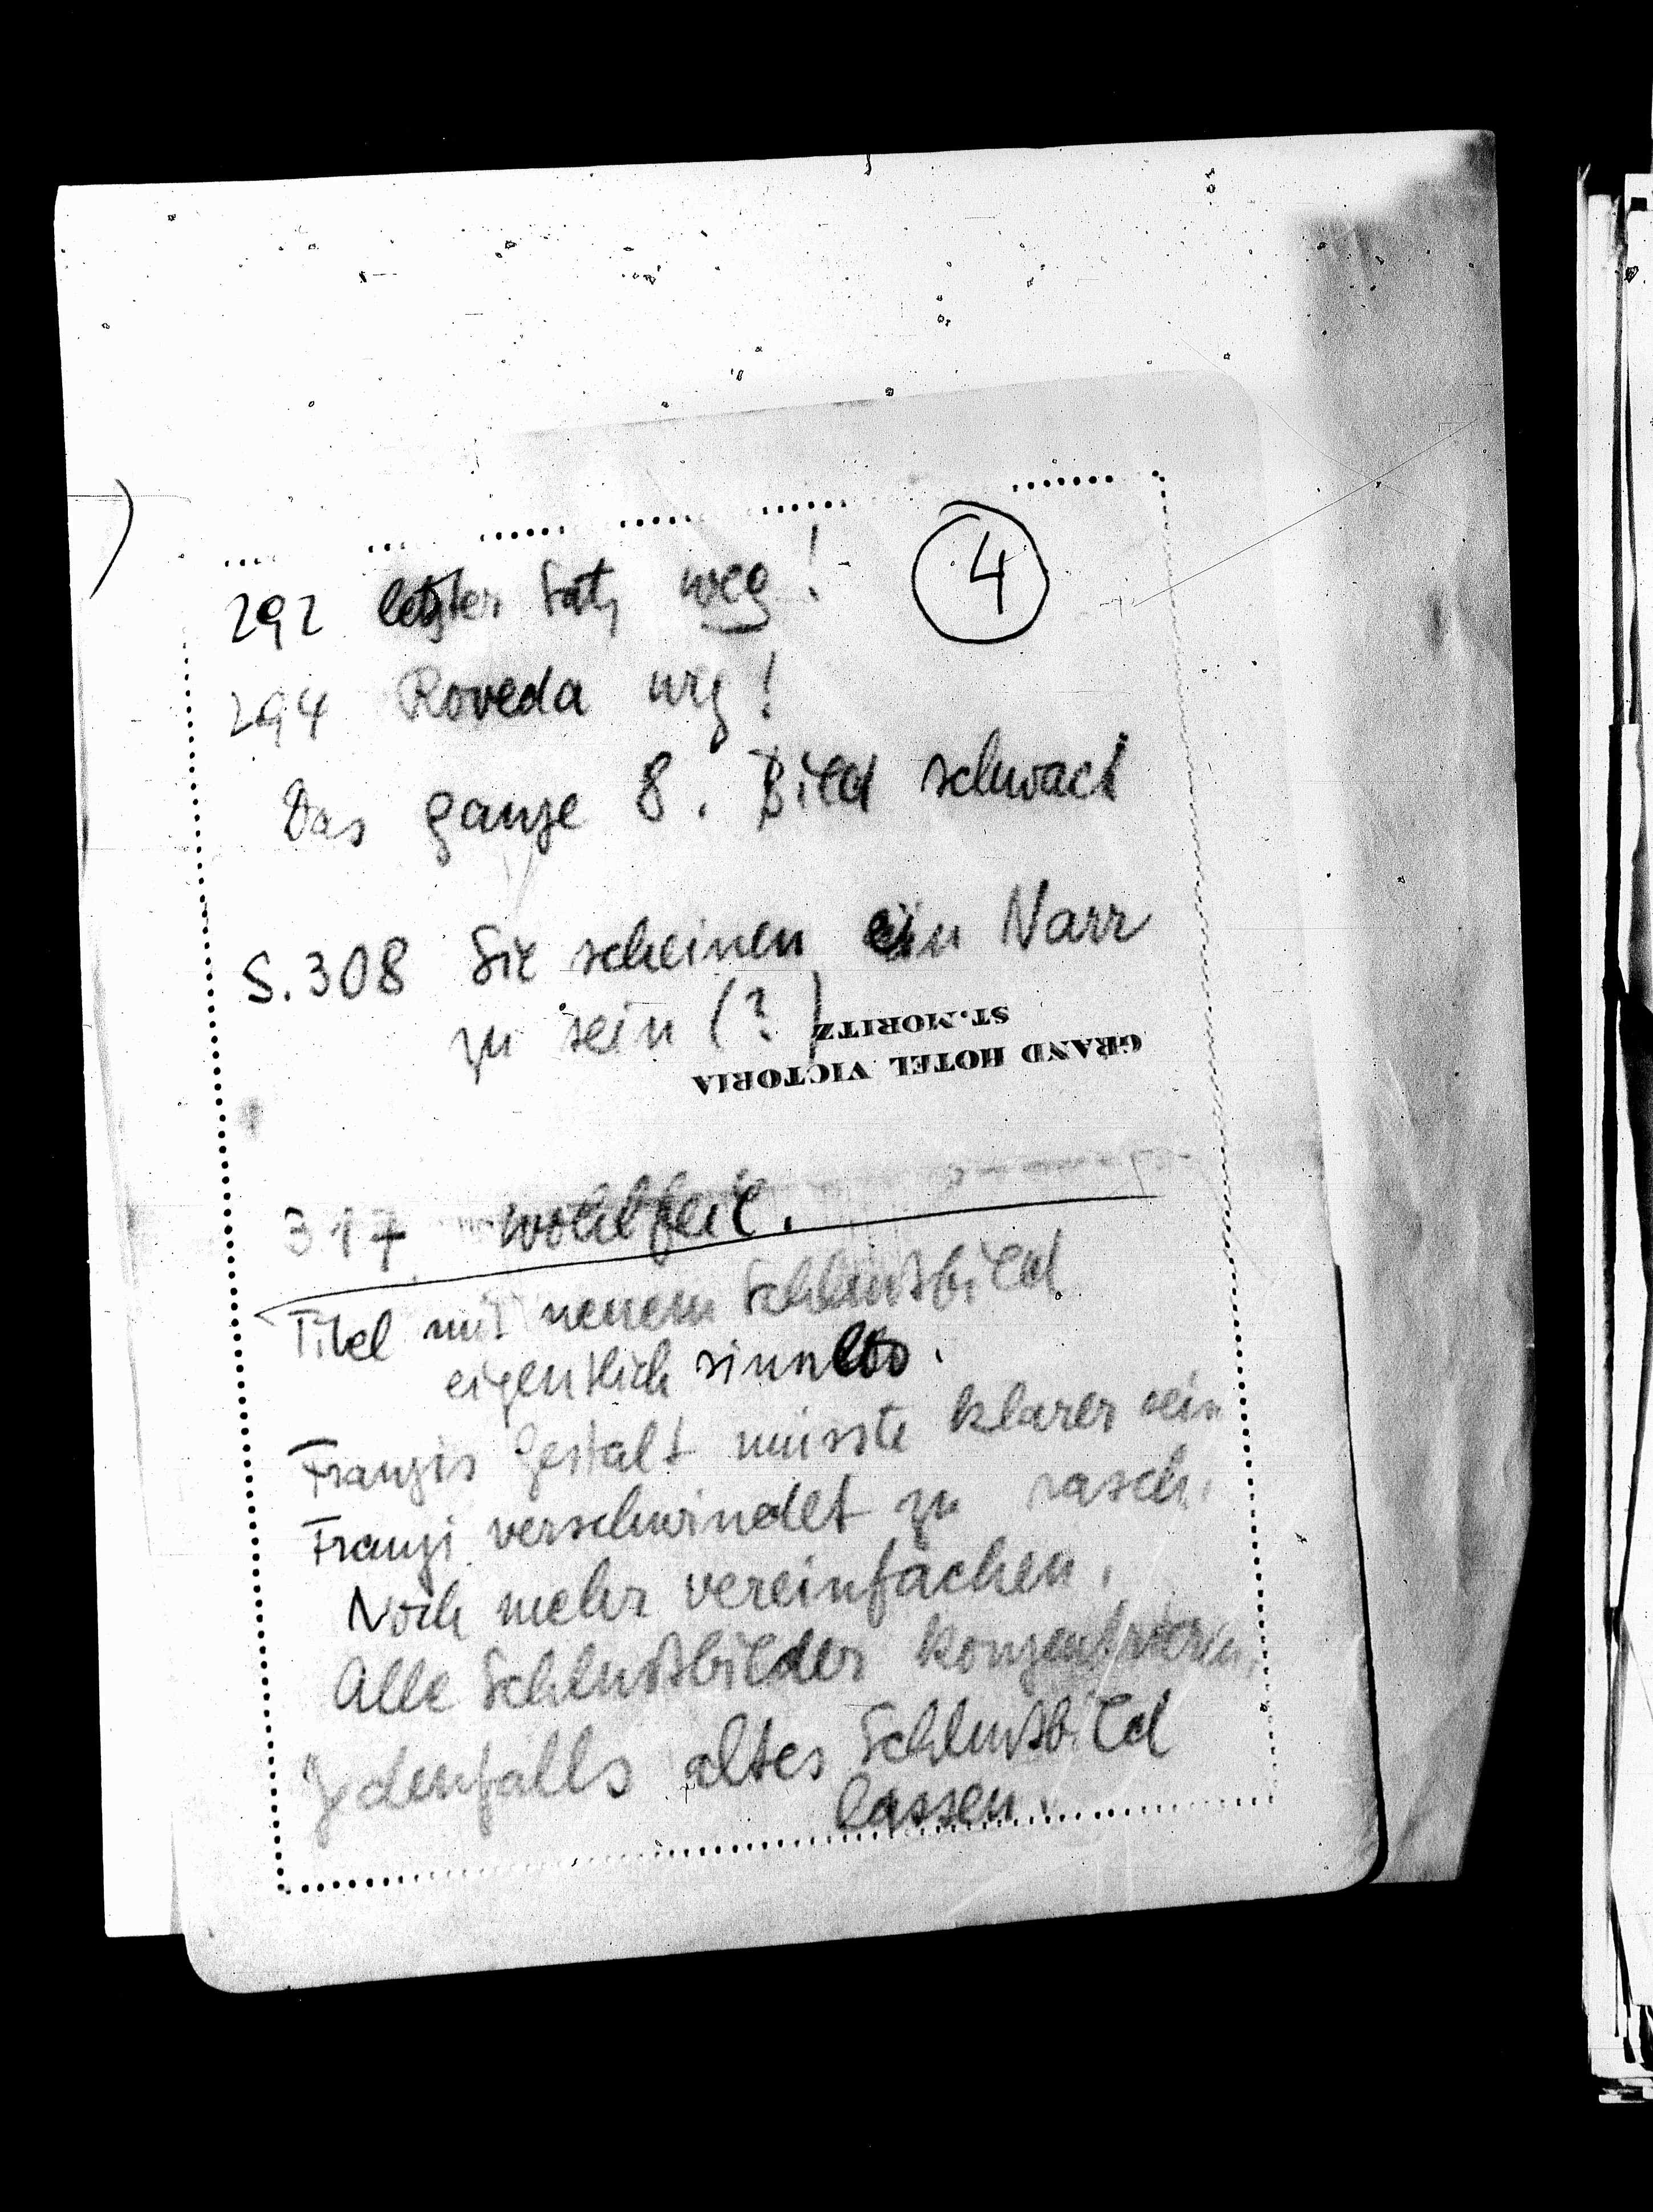 4
292 letzter Satz weg!
294 Roveda weg!
Das ganze 8. Bild schwach
S. 308 Sie scheinen ein Narr
zu sein (?)
ST. MORITZ
GRAND HOTEL VICTORIA
317 wohlfeil.
Titel mit neuem Schlußbild
eigentlich sinnlos.
Franzis Gestalt müsste klarer sein
Franzi verschwindet zu rasch.
Noch mehr vereinfachen.
Alle Schlußbilder konzentrieren.
Jedenfalls altes Schlußbild
lassen.